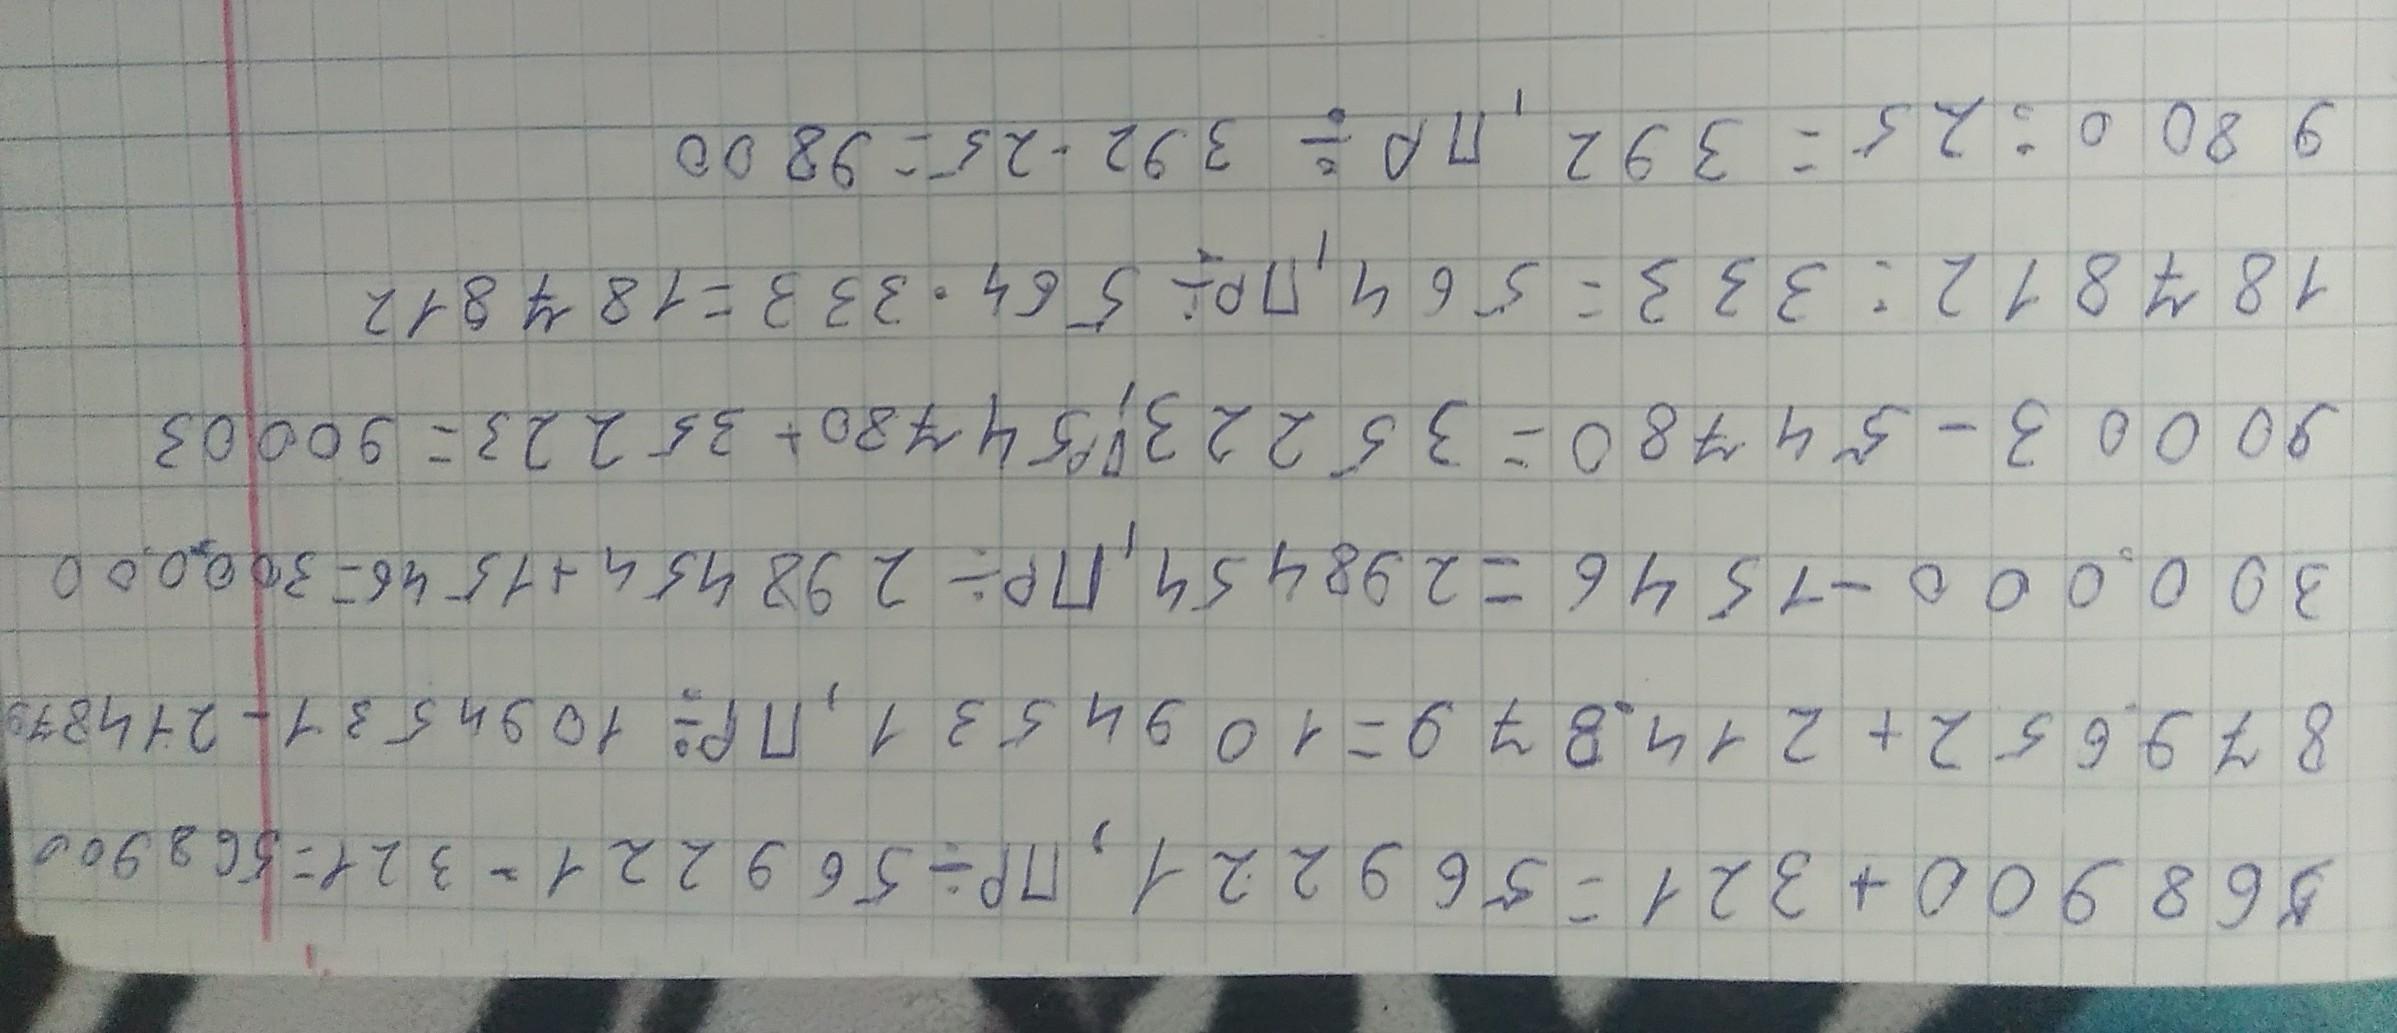 568900+321=569221, ПР÷569221-321=568900
879.652+214.879=1094531, ПР÷ 1094531-214879
300.000-1546=298454, ПР÷ 298454+1546=300.000
90003-54780=35223, ПР54780+35223=90003
187812:333=564, ПР÷ 564·333=187812
9800:25=392, ПР÷ 392·25=9800